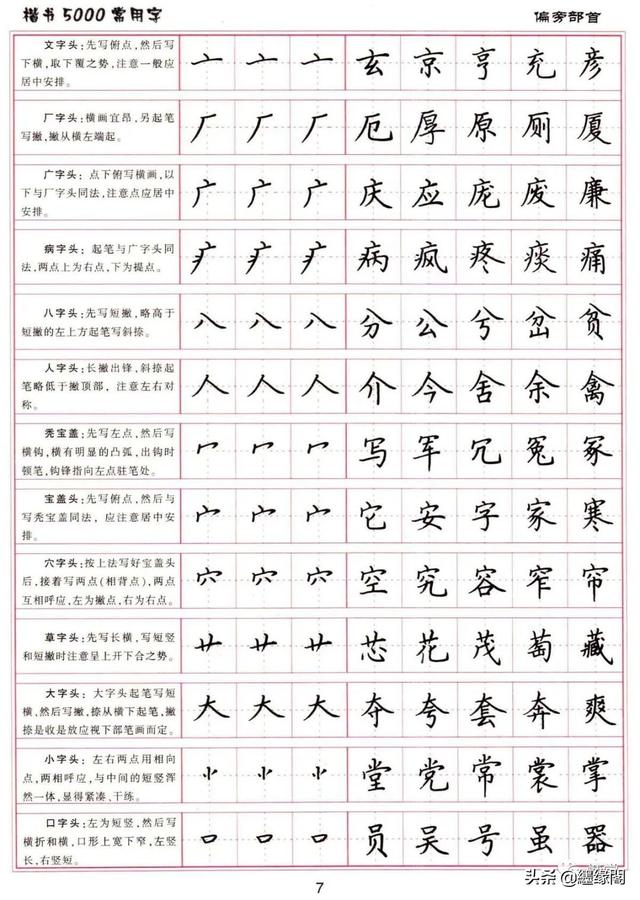 楷书5000常用字
偏旁部首
文字头：先写俯点，然后写
下横，取下覆之势，注意一般应
居中安排。
亠 亠 亠 玄 京 亨 充 彦
厂字头：横画宜昂，另起笔
写撇，撇从横左端起。
厂 厂 厂 厄 厚 原 厕 厦
广字头：点下俯写横画，以
下与厂字头同法，注意点应居中
安排。
广 广 广 庆 应 庞 废 廉
病字头：起笔与广字头同
法，两点上为右点，下为提点。
疒 疒 疒 病 疯 疼 痰 痛
八字头：先写短撇，略高于
短撇的左上方起笔写斜捺。
八 八 八 分 公 兮 岔 贫
人字头：长撇出锋，斜捺起
笔略低于撇顶部，注意左右对
称。
人 人 人 介 今 舍 余 禽
秃宝盖：先写左点，然后写
横钩，横有明显的凸弧，出钩时
顿笔，钩锋指向左点驻笔处。
冖 冖 冖 写 军 冗 冤 冢
宝盖头：先写俯点，然后与
写秃宝盖同法，应注意居中安
排。
宀 宀 宀 它 安 字 家 寒
穴字头：按上法写好宝盖头
后，接着写两点(相背点)，两点
互相呼应，左为撇点，右为右点。
穴 穴 穴 空 究 容 窄 帘
草字头：先写长横，写短竖
和短撇时注意呈上开下合之势。
艹 艹 艹 芯 花 茂 萄 藏
大字头：大字头起笔写短
横，然后写撇，捺从横下起笔，撇
捺是收是放应视下部笔画而定。
大 大 大 夺 夸 套 奔 爽
小字头：左右两点用相向
点，两相呼应，与中间的短竖浑
然一体，显得紧凑、干练。
⺌ ⺌ ⺌ 堂 党 常 裳 掌
口字头：左为短竖，然后写
横折和横，口形上宽下窄，左竖
长，右竖短。
口 口 口 员 吴 号 虽 器
7
头条@纏缘閣